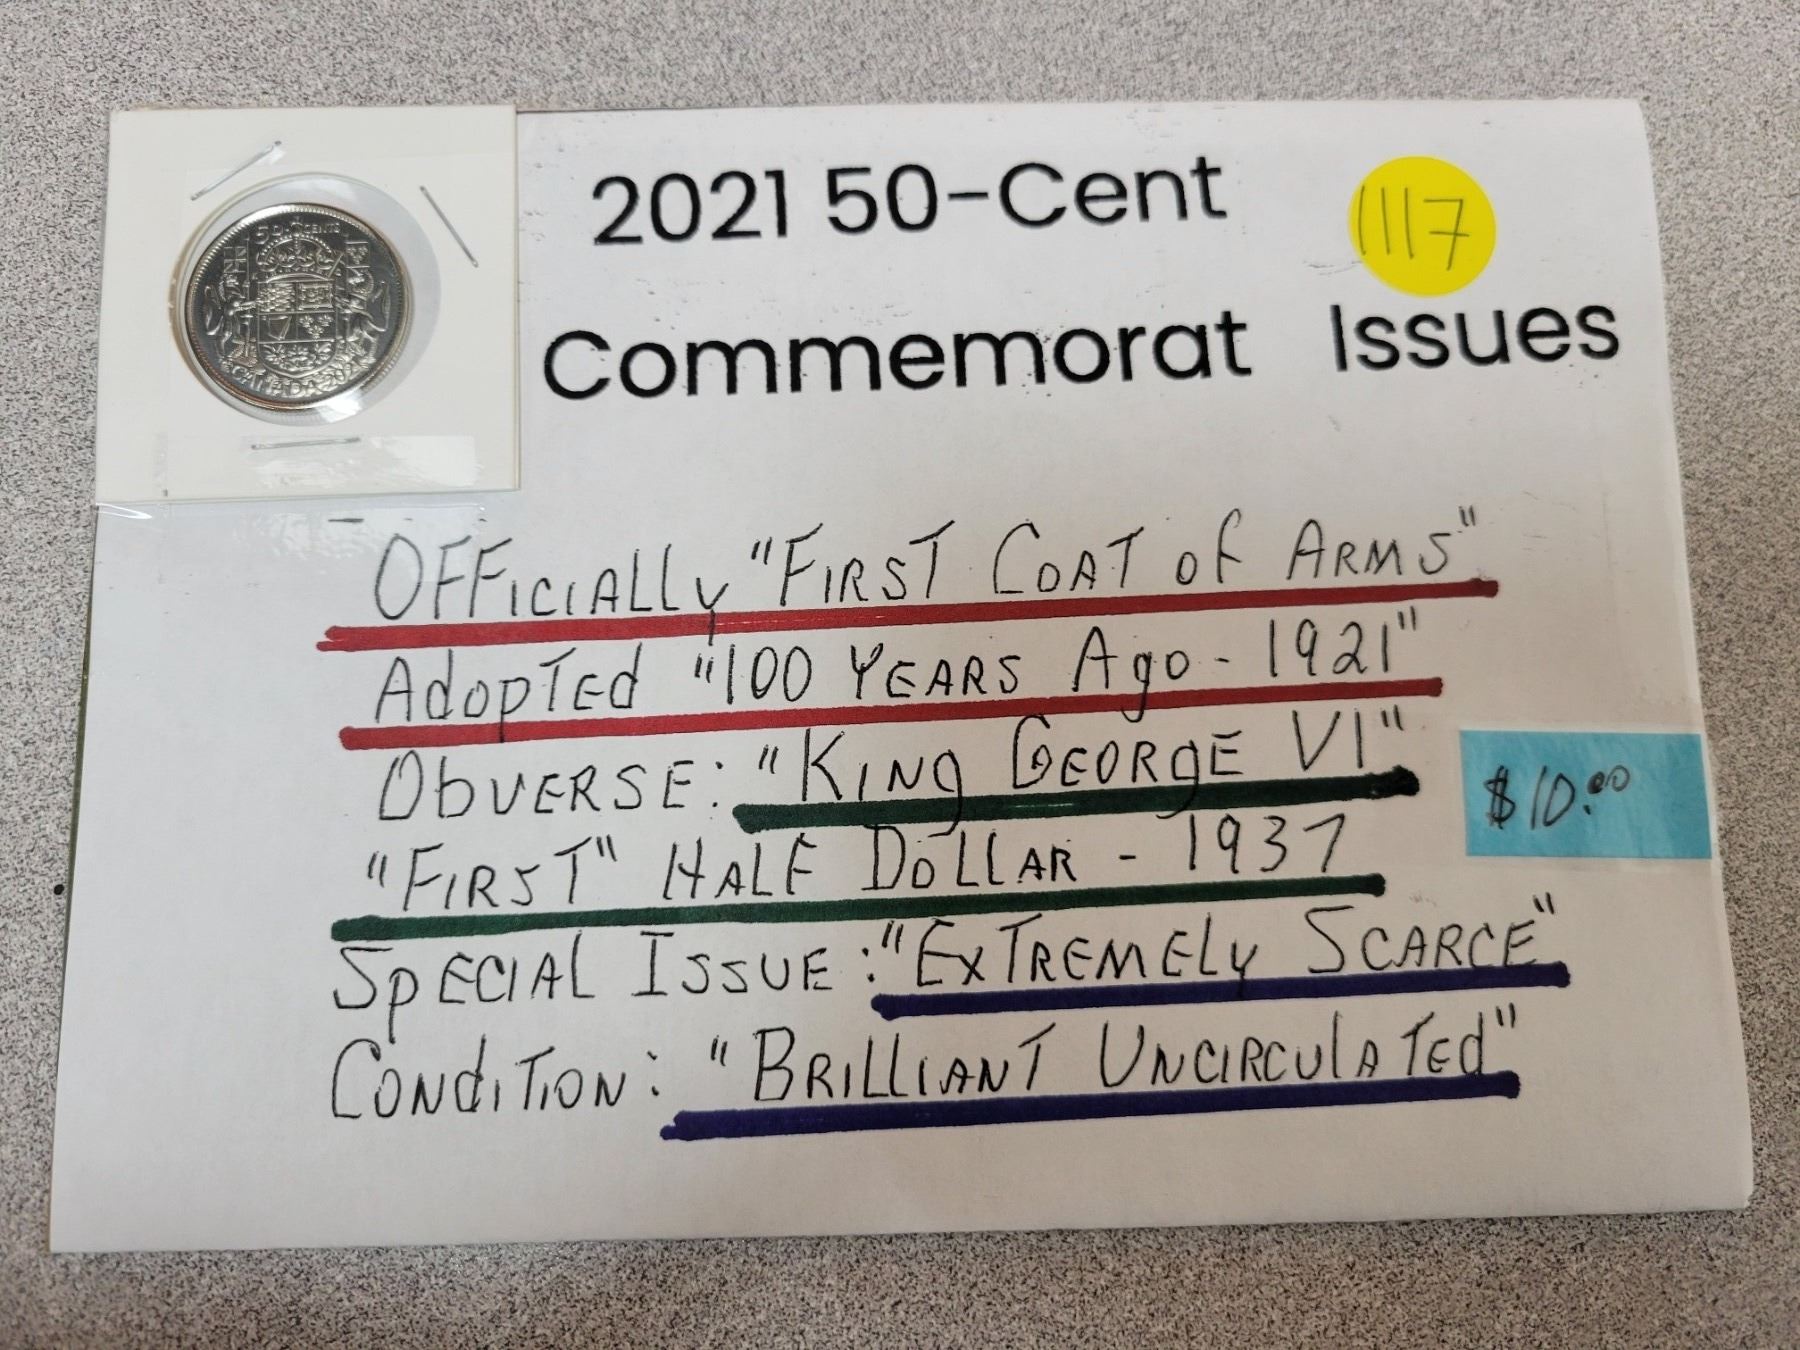 50 CENTS
CANADA 2021
2021 50-Cent
1117
Commemorat Issues
OFFICIALLY "FIRST COAT OF ARMS"
AdopTEd "100 YEARS Ago - 1921"
ObVERSE: "KING GEORGE VI"
"FIRST" HALF DOLLAR - 1937
$10.00
SpECIAL ISSUE: "EXTREMELY SCARCE"
CONdITION: "BRILLIANT UNCIRCULATEd"